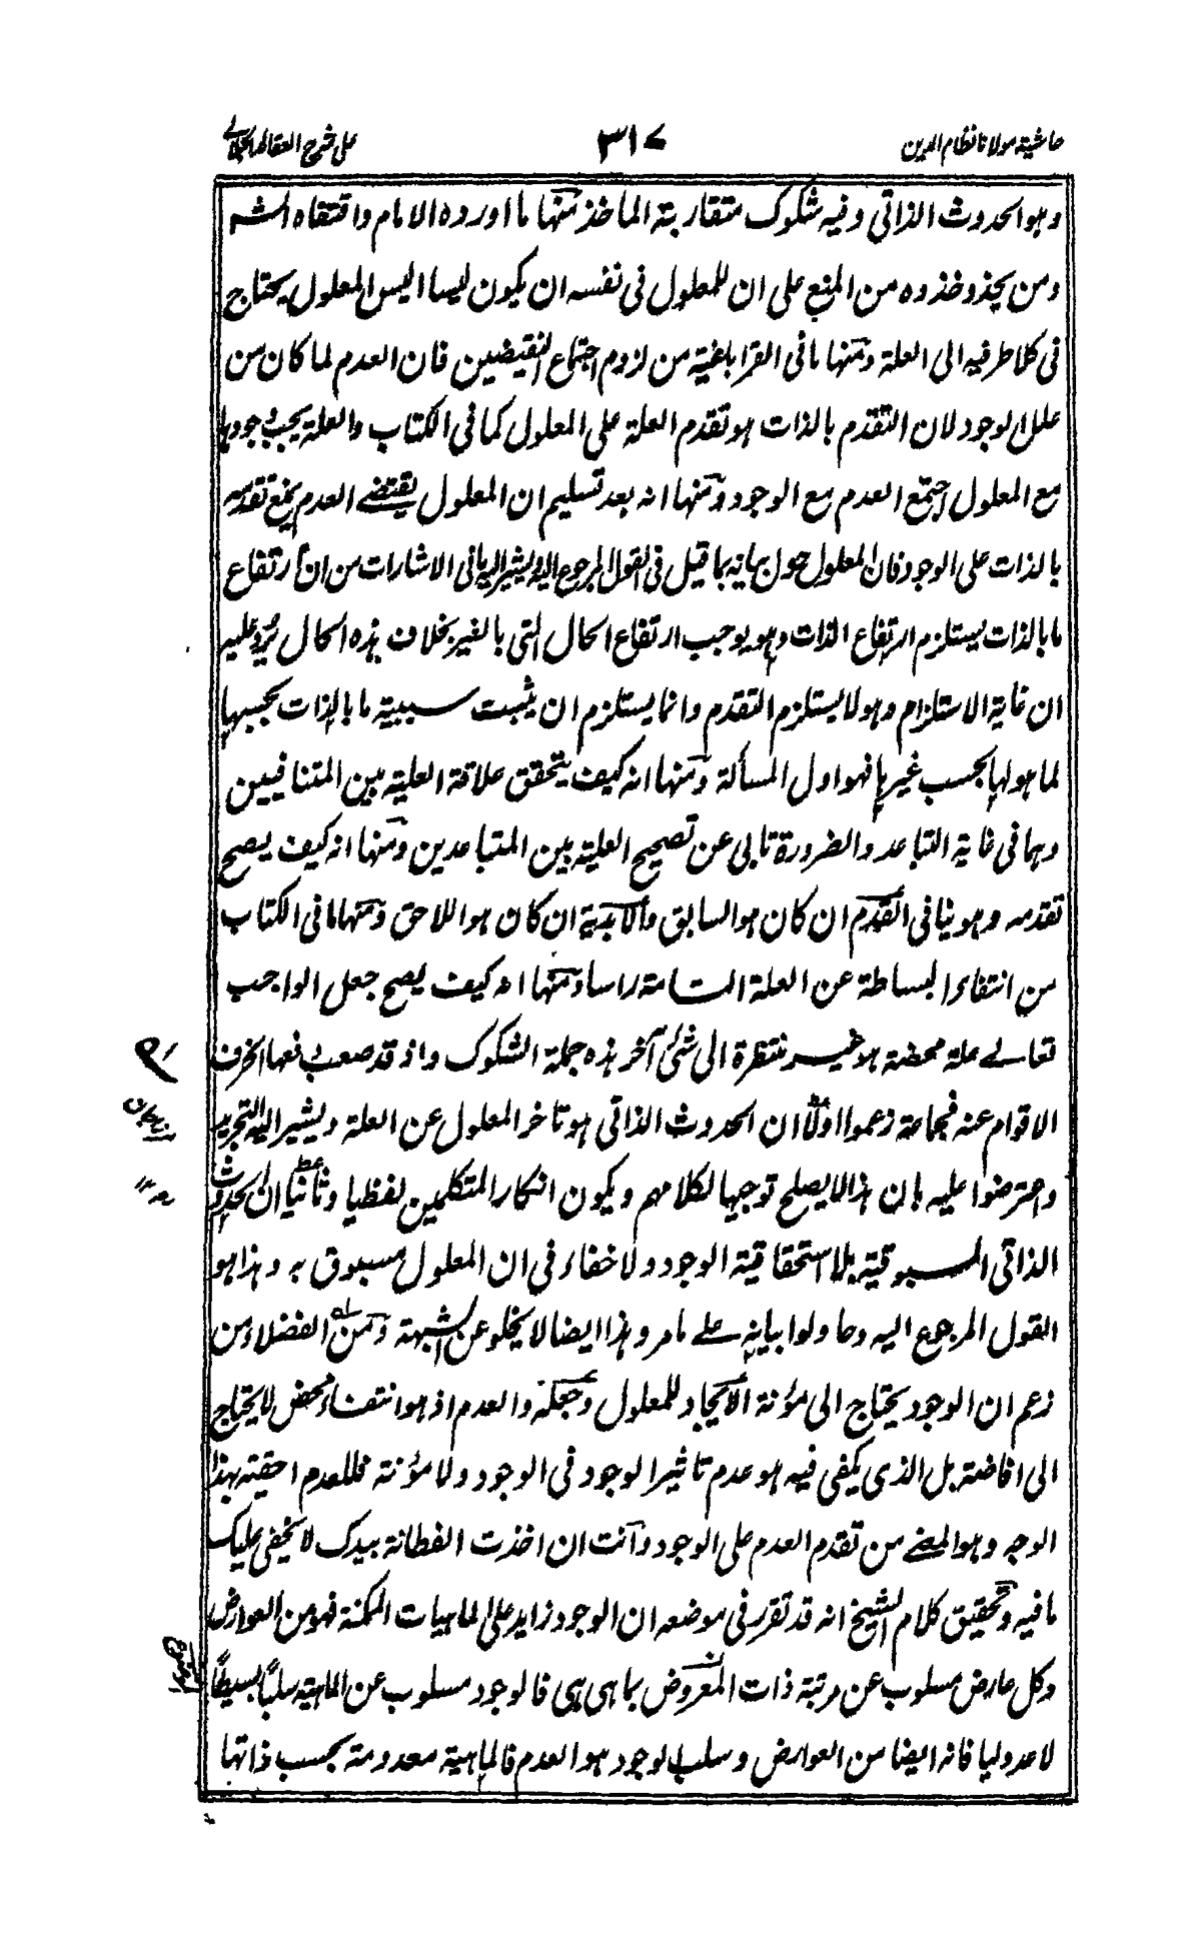 حاشية مولانا نظام الدين
٣١٧
على شرح العقائد
وهو الحدوث الذاتي وفيه شكوك متقاربة الماخذ منها ما اورده الامام واقتفاه
ومن يحذو حذوه من المنع على ان للمعلول في نفسه ان يكون ليسا اليس المعلول يحتاج
في كلا طرفيه الى العلة ومنها ما في القرا بلغية من لزوم اجتماع النقيضين فان العدم لما كان من
علل الوجود لان التقدم بالذات هو تقدم العلة على المعلول كما في الكتاب والعلة يجب وجودها
مع المعلول اجتمع العدم مع الوجود ومنها انه بعد تسليم ان المعلول يقتضي العدم يمنع تقدمه
بالذات على الوجود فان المعلول حول بيانه بما قيل في القول المرجوع اليه ويشير اليه في الاشارات من ان ارتفاع
ما بالذات يستلزم ارتفاع الذات وهو يوجب ارتفاع الحال التي بالغير بخلاف هذه الحال يرد عليه
ان غاية الاستلزام وهو لا يستلزم التقدم وانما يستلزم ان يثبت سببية ما بالذات بحسبها
لما هو لها بحسب غيرها فهو اول المسألة ومنها انه كيف يتحقق علاقة العلية بين المتنافيين
وهما في غاية التباعد والضرورة تابى عن تصحيح العلية بين المتباعدين ومنها انه كيف يصح
تقدمه وهو ينافي القدم ان كان هو السابق والابدية ان كان هو اللاحق ومنها ما في الكتاب
من انتفاء البساطة عن العلة التامة راسا ومنها انه كيف يصح جعل الواجب
تعالى علة محضة هو غير منتظرة الى شئ آخر هذه جملة الشكوك واذ قد صعب دفعها انحرف
الاقوام عنه فجماعة زعموا اولا ان الحدوث الذاتي هو تاخر المعلول عن العلة ويشير اليه التجريد
واعترضوا عليه بان هذا لا يصلح توجيها لكلامهم ويكون انكار المتكلمين لفظيا وثانيا ان الحدوث
الذاتي المسبوقية بلا استحقاقية الوجود ولا خفاء في ان المعلول مسبوق به وهذا هو
القول المرجوع اليه وحاولوا بيانه على ما مر وهذا ايضا لا يخلو عن الشبهة ومن الفضلاء من
زعم ان الوجود يحتاج الى مؤنة الايجاد للمعلول وجعله والعدم اذ هو انتفاء محض لا يحتاج
الى افاضة بل الذي يكفي فيه هو عدم تاثير الوجود في الوجود ولا مؤنة فللعدم احقية بهذا
الوجه وهو المعنى من تقدم العدم على الوجود وانت ان اخذت الفطانة بيدك لا يخفى عليك
ما فيه وتحقيق كلام الشيخ انه قد تقرر في موضعه ان الوجود زايد على الماهيات الممكنة فهو من العوارض
وكل عارض مسلوب عن مرتبة ذات المعروض بما هي هي فالوجود مسلوب عن الماهية سلبا بسيطا
لا عدوليا فانه ايضا من العوارض وسلب الوجود هو العدم فالماهية معدومة بحسب ذاتها